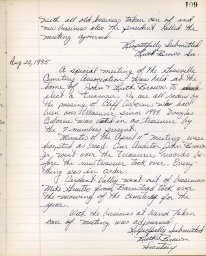 109
with all old business taken care of and
new business also the President called the
meeting adjourned.
Respectfully Submitted
Ruth Brown Sec.
Aug 20, 1995
A special meeting of the
Cemetery Association was held at the
home of John & Ruth Brown to
elect a Treasurer. We are all sorry for
the passing of Osborne who had
been our Treasurer since 1944. Douglas
Osborne was voted in as Treasurer by
the 7 members present.
Minutes of the April 11th meeting were
accepted as read. Our Auditor John Brown
Jr. went over the Treasurer records be-
fore the new treasurer took over. Every
thing was in order.
Valley went out of business
Mike from took over
the mowing of the cemetery for the
year.
With the business at hand taken
care of meeting was adjourned.
Respectfully Submitted
Ruth Brown
Secretary